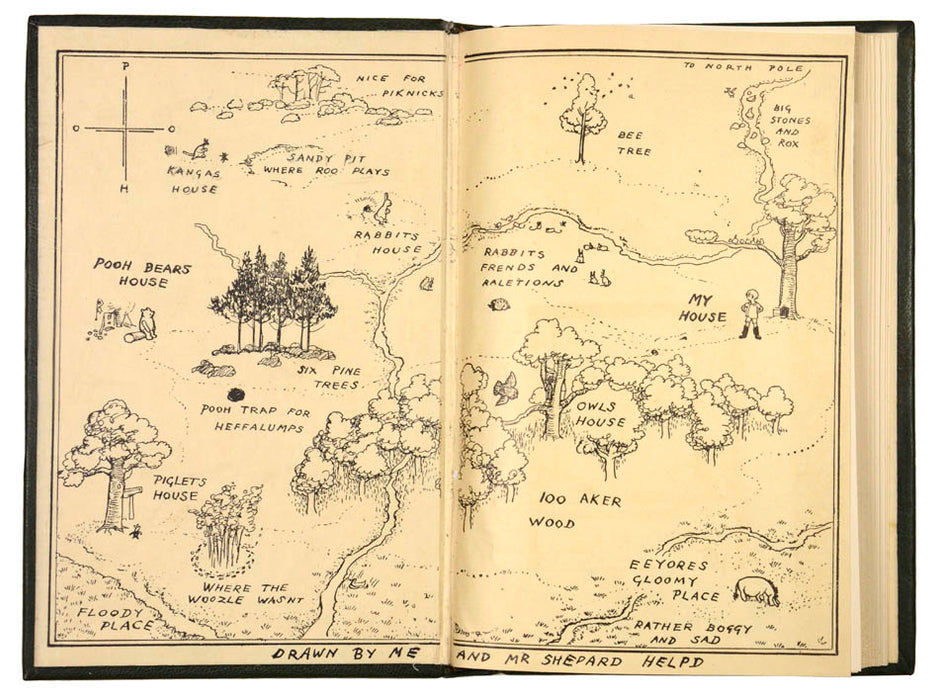 P
O
O
H
NICE FOR
PIKNICKS
KANGAS
HOUSE
SANDY PIT
WHERE ROO PLAYS
RABBITS
HOUSE
POOH BEARS
HOUSE
SIX PINE
TREES
POOH TRAP FOR
HEFFALUMPS
PIGLETS
HOUSE
WHERE THE
WOOZLE WASNT
FLOODY
PLACE
TO NORTH POLE
BIG
STONES
AND
ROX
BEE
TREE
RABBITS
FRENDS AND
RALETIONS
MY
HOUSE
OWLS
HOUSE
100 AKER
WOOD
EEYORES
GLOOMY
PLACE
RATHER BOGGY
AND SAD
DRAWN BY ME AND MR SHEPARD HELPD